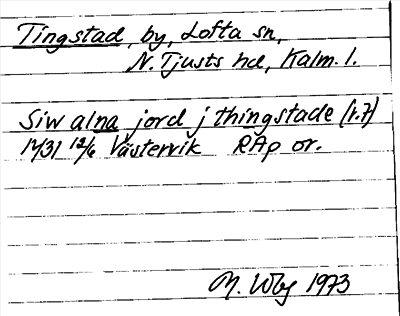 Tingstad, by, Lofta sn,
N. Tjusts hd, Kalm. l.
Siw alna jord j thingstade (r.7)
1431 12/6 Västervik RAp or.
M. Wbg 1973